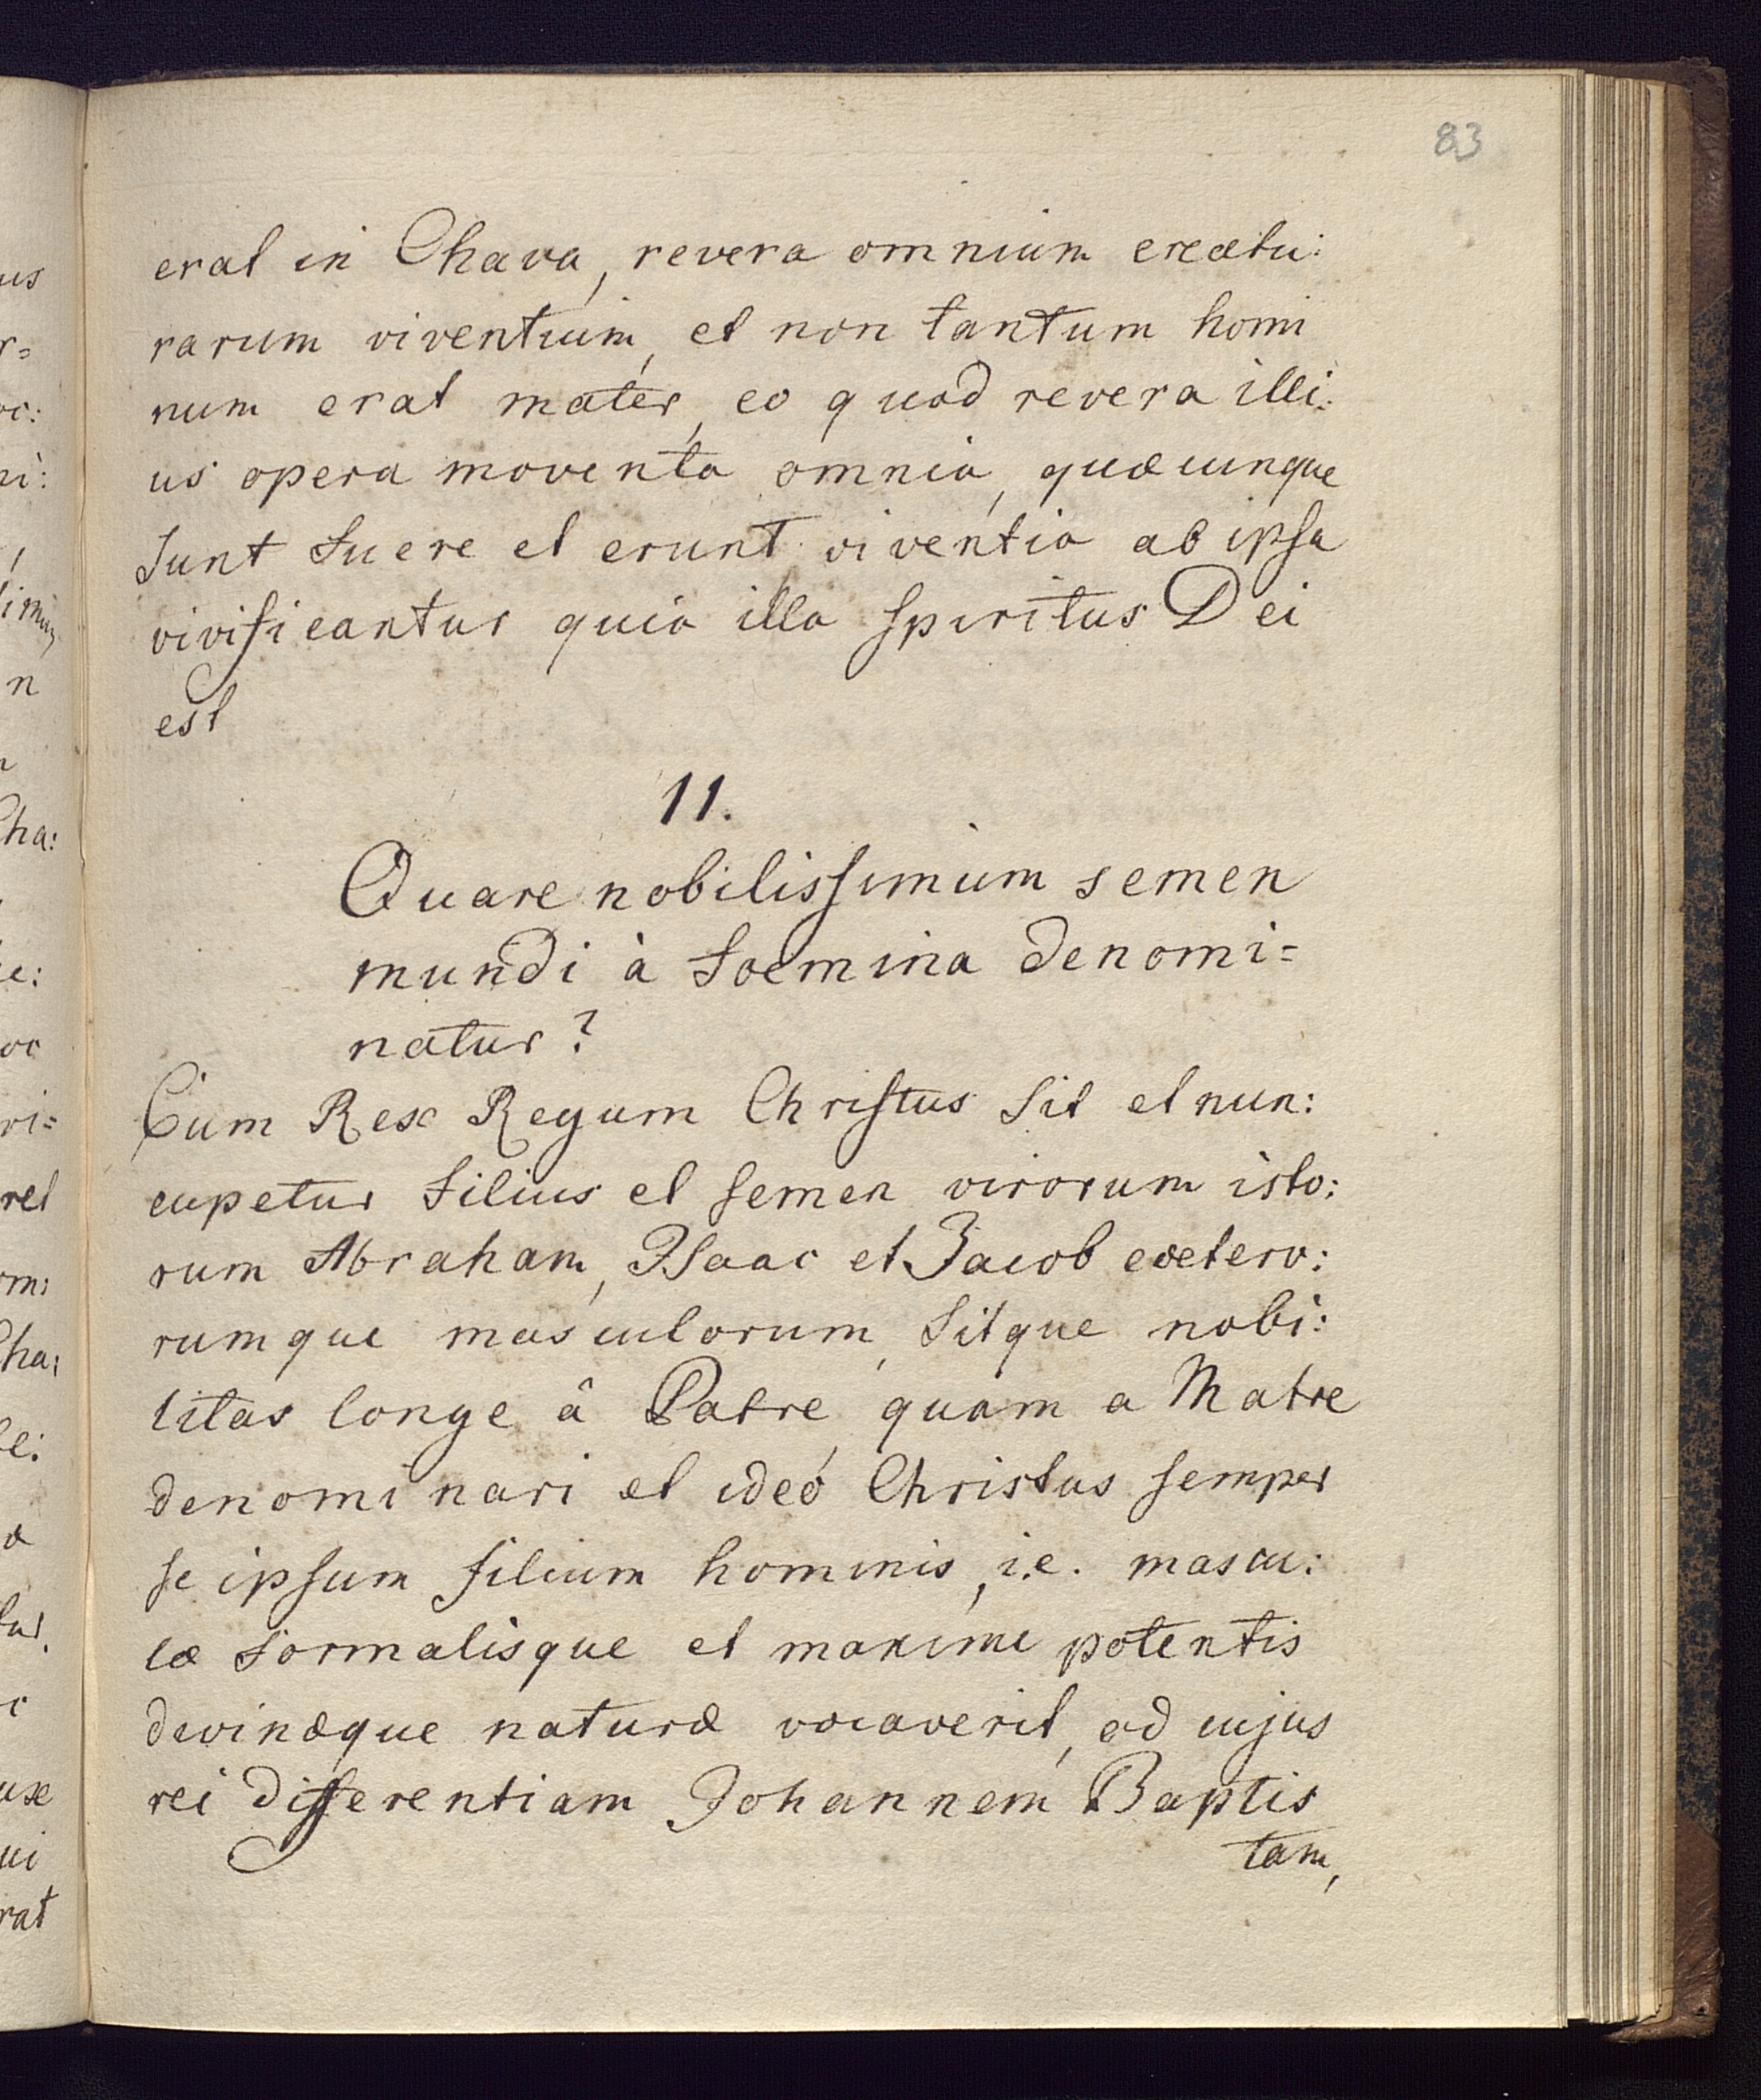 83
erat in Chava, revera omnium creatu:
rarum viventium, et non tantum homi
num erat mater, eo quod revera illi:
us opera moventa omnia, quæcunque
sunt fuere et erunt viventia ab ipsa
vivificantur quia illa spiritus Dei
est
11.
Quare nobilissimum semen
mundi à foemina denomi=
natur?
Cum Rex Regum Christus sit et nun:
cupetur filius et semen virorum isto:
rum Abraham, Isaac et Jacob cætero:
rumque masculorum, sitque nobi:
litas longe â Patre, quam a Matre
denominari et ideó Christus semper
se ipsum filium hominis, i.e. mascu:
læ formalisque et maxime potentis
divinæque naturæ vocaverit, ad cujus
rei differentiam Johannem Baptis
tam,